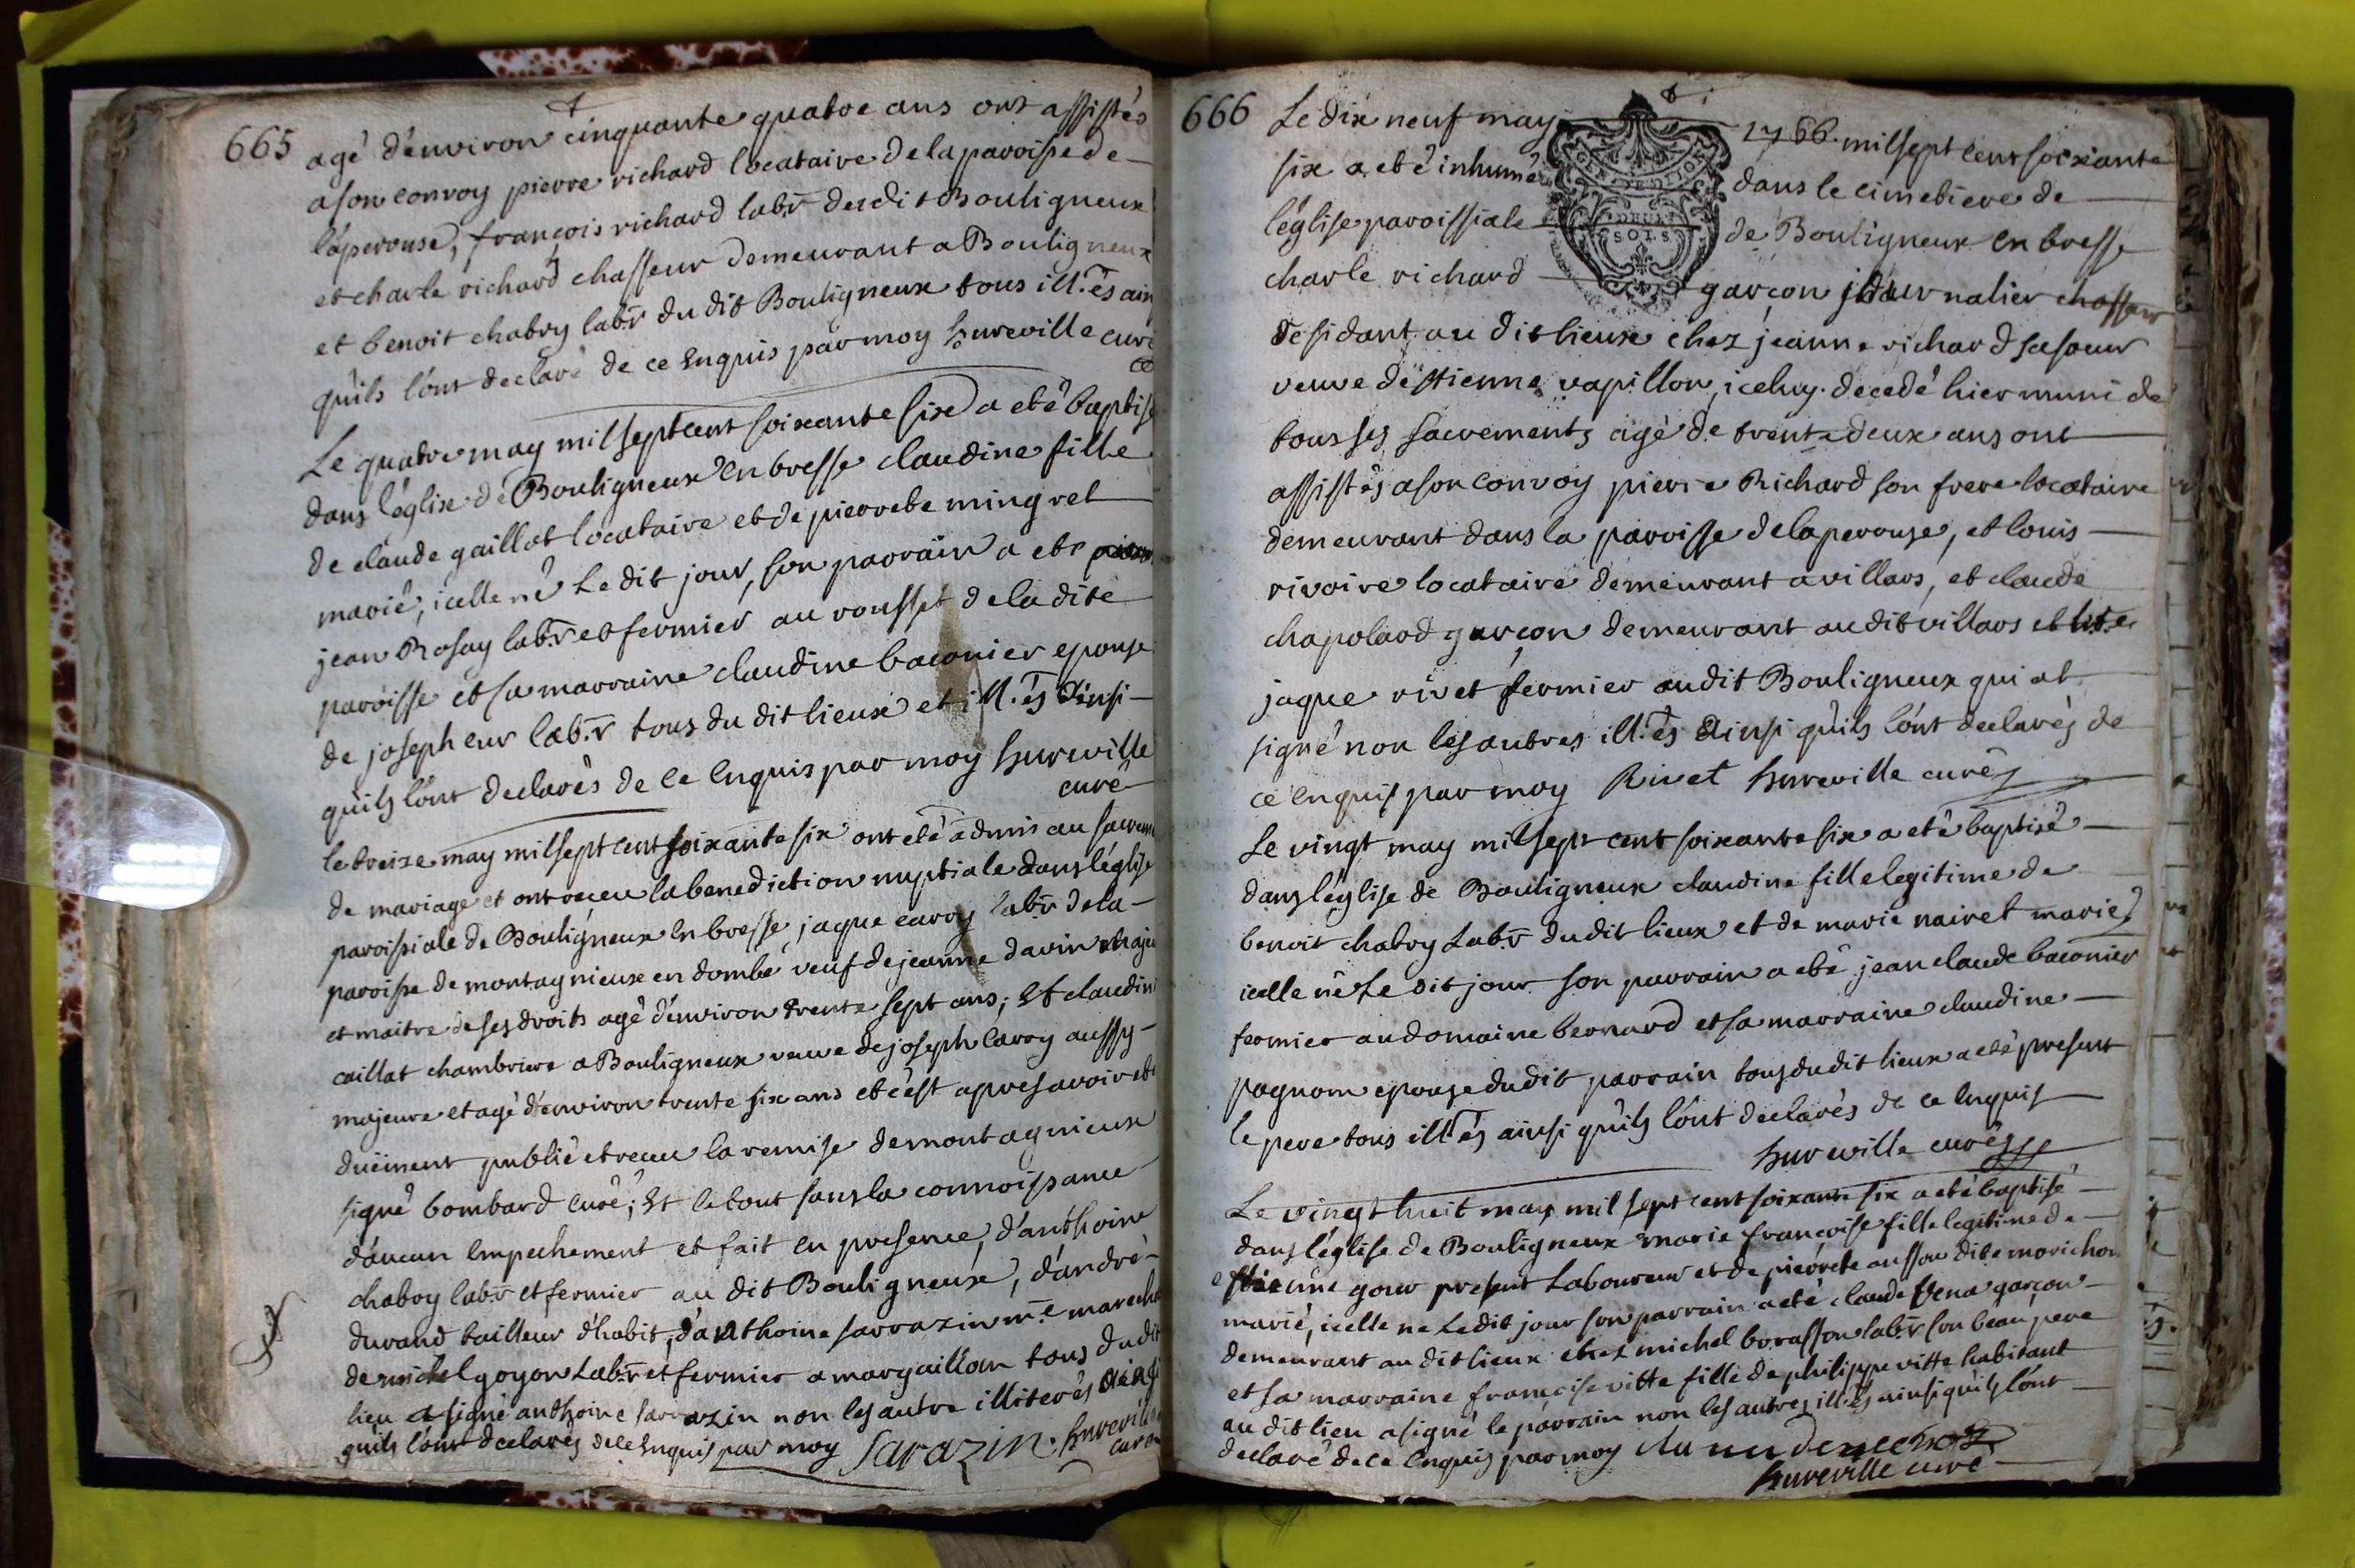 665
agé d'environ cinquante quatre ans ont assistés
a son convoy pierre richard locataire de la paroisse de
laperouse, françois richard labr dudit Bouligneux
et charle richard chasseur demeurant a Bouligneux
et benoit chabry labr du dit Bouligneux tous ill.és ain
quils l'ont declaré de ce enquis par moy hureville curé
Le quatre may mil sept cent soixante six a eté baptisé
dans l'églixe de Bouligneux en bresse claudine fille
de claude gaillot locataire et de pierrete mingret
marié, icelle né Le dit jour, son parrain a eté
jean Rosay lab.r et fermier au rousset de la dite
paroisse et sa marraine claudine baconier epouse
de joseph eur lab.r tous du dit lieux et ill.és Ainsi
quils l'ont declarés de ce Enquis par moy hureville
curé
le treize may mil sept cent soixante six ont eté admis au sacrem
de mariage et ont receu la benediction nuptiale dans léglise
paroissiale de Bouligneux en bresse, jaque carry labr de la
paroisse de montagnieux en dombe veuf de jeanne davin majeu
et maitre de ses droits agé d'environ trente sept ans; Et claudine
caillat chambriere a Bouligneux veuve de joseph laroy aussy
majeure et agé d'environ trente six ans et c'est apres avoir eté
duëment publié et receu la remise de montagnieux
signé bombard curé; Et le tout sans la connoissance
d'aucun Empechement et fait en presence, d'anthoine
chabry lab.r et fermier au dit Bouligneux, d'andré
durand tailleur d'habit, d'anthoine sarrazin m.e marecha
de michel goyon Lab.r et fermier a margaillan tous du dit
lieu a signé anthoine sarrazin non les autre illiterés Ainsi
quils l'ont declarés de ce Enquis par moy Sarazin. hureville
curé
666
Le dix neuf may 1766. mil sept cent soixante
six a eté inhumé dans le cimetiere de
léglise paroissiale de Bouligneux en bresse
GEN. DE DIJON
DEUX
SOLS
charle richard garçon journalier chasseur
residant au dit lieux chez jeanne richard sa soeur
veuve d'estienne vapillon, iceluy decedé hier muni de
tous ses sacrements agé de trente deux ans ont
assistés a son convoy pierre Richard son frere locataire
demeurant dans la paroisse de laperouse, et louis
rivoire locataire demeurant a villars, et claude
chapolard garçon demeurant audit villars et
jaque rivet fermier audit Bouligneux qui at
signé non les autres ill.és Ainsi quils l'ont declarés de
ce enquis par moy Rivet hureville curé
Le vingt may mil sept cent soixante six a eté baptisé
dans léglise de Bouligneux claudine fille legitime de
benoit chabry Lab.r dudit lieux et de marie nairet marié
icelle né Le dit jour son parrain a eté jean claude baconier
fermier au domaine bernard et sa marraine claudine
pagnom epouse dudit parrain tous dudit lieux a eté present
le pere tous ill.és ainsi quils l'ont declarés de ce enquis
hureville curé
Le vingt huit may mil sept cent soixante six a eté baptisé
dans léglise de Bouligneux marie françoise fille legitime de
estienne gour present Laboureur et de pierrete ausson dite morichon
marié, icelle ne Le dit jour son parrain a eté claude Vena garçon
demeurant au dit lieux chez michel borasson lab.r son beau pere
et sa marraine françoise vitte fille de philippe vitte habitant
au dit lieu a signé le parrain non les autres ill.és ainsi quils l'ont
declaré de ce Enquis par moy
hureville curé